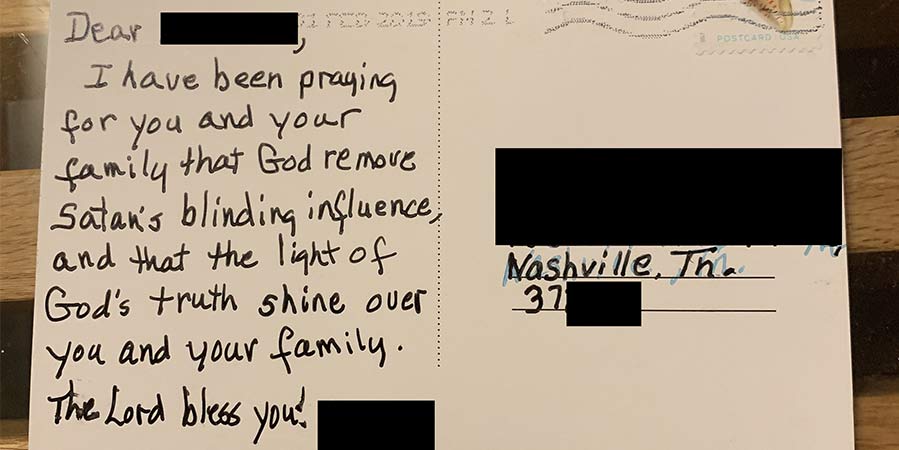 Dear ,
I have been praying
for you and your
family that God remove
Satan's blinding influence,
and that the light of
God's truth shine over
you and your family.
The Lord bless you!
POSTCARD USA
Nashville, Tn.
37